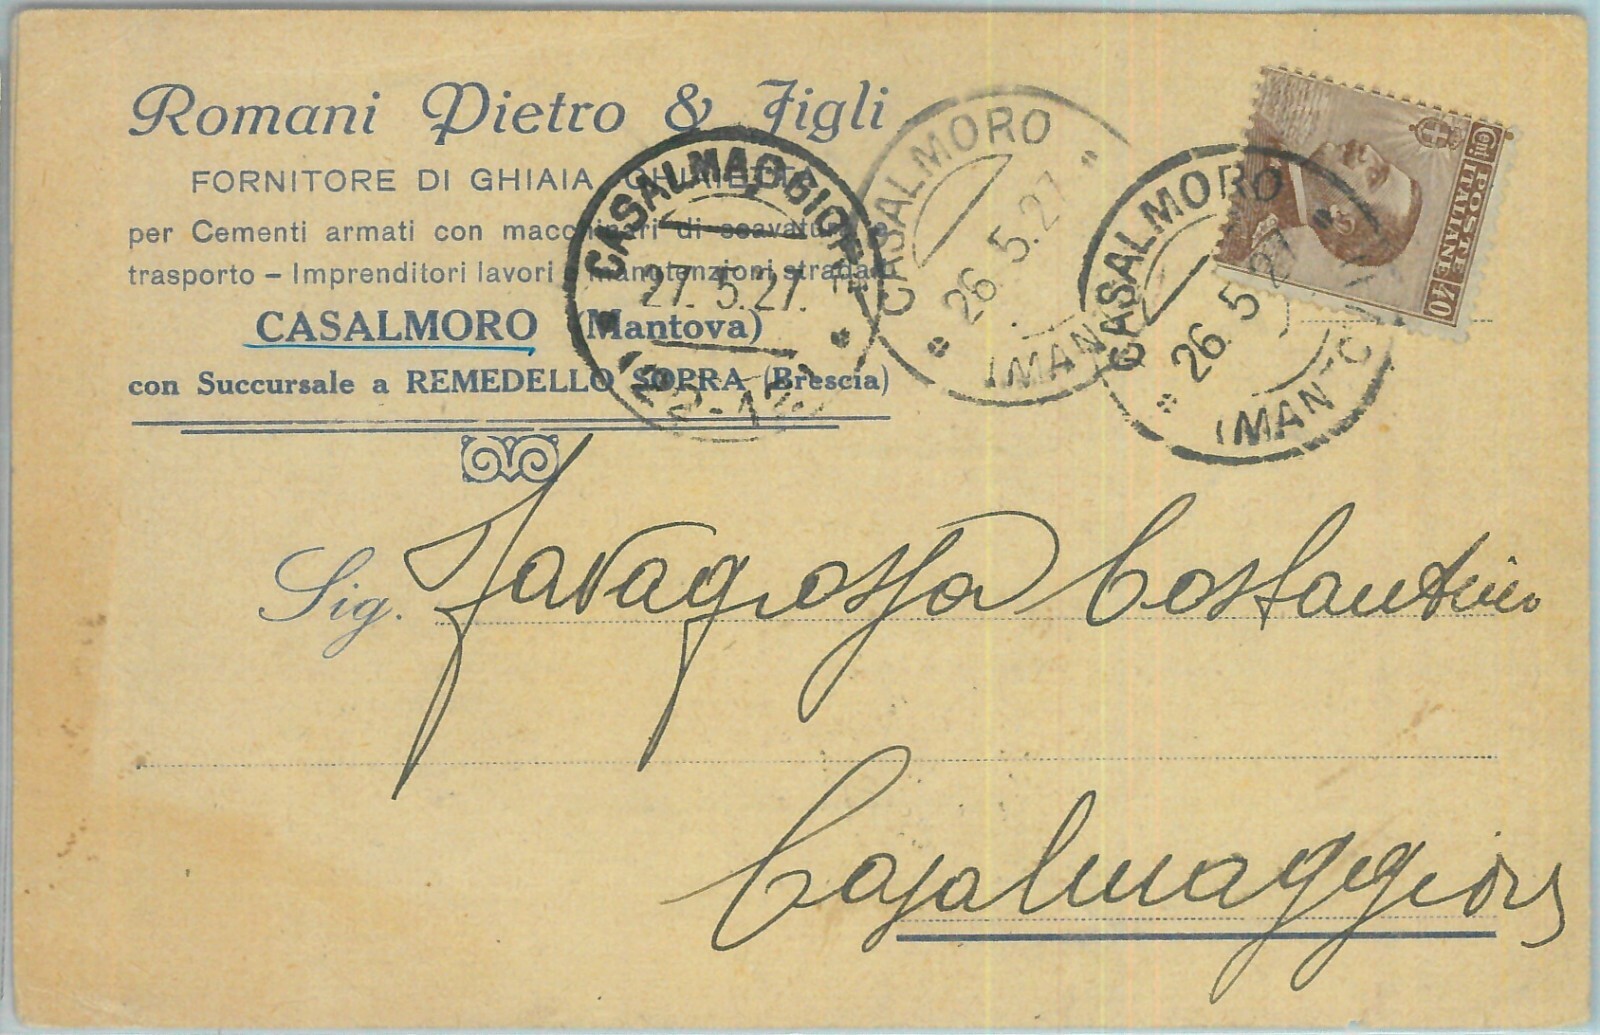 Romani Pietro & Figli
FORNITORE DI GHIAIA
per Cementi armati con macchinari di scavatura e
trasporto – Imprenditori lavori e manutenzioni stradali
CASALMORO (Mantova)
con Succursale a REMEDELLO SOPRA (Brescia)
CASALMAGGIORE
27.5.27
CASALMORO
26.5.27
(MANTOVA)
CASALMORO
26.5.27
(MANTOVA)
Cent. 40
POSTE ITALIANE
Sig. Favagrossa Costantino
Casalmaggiore